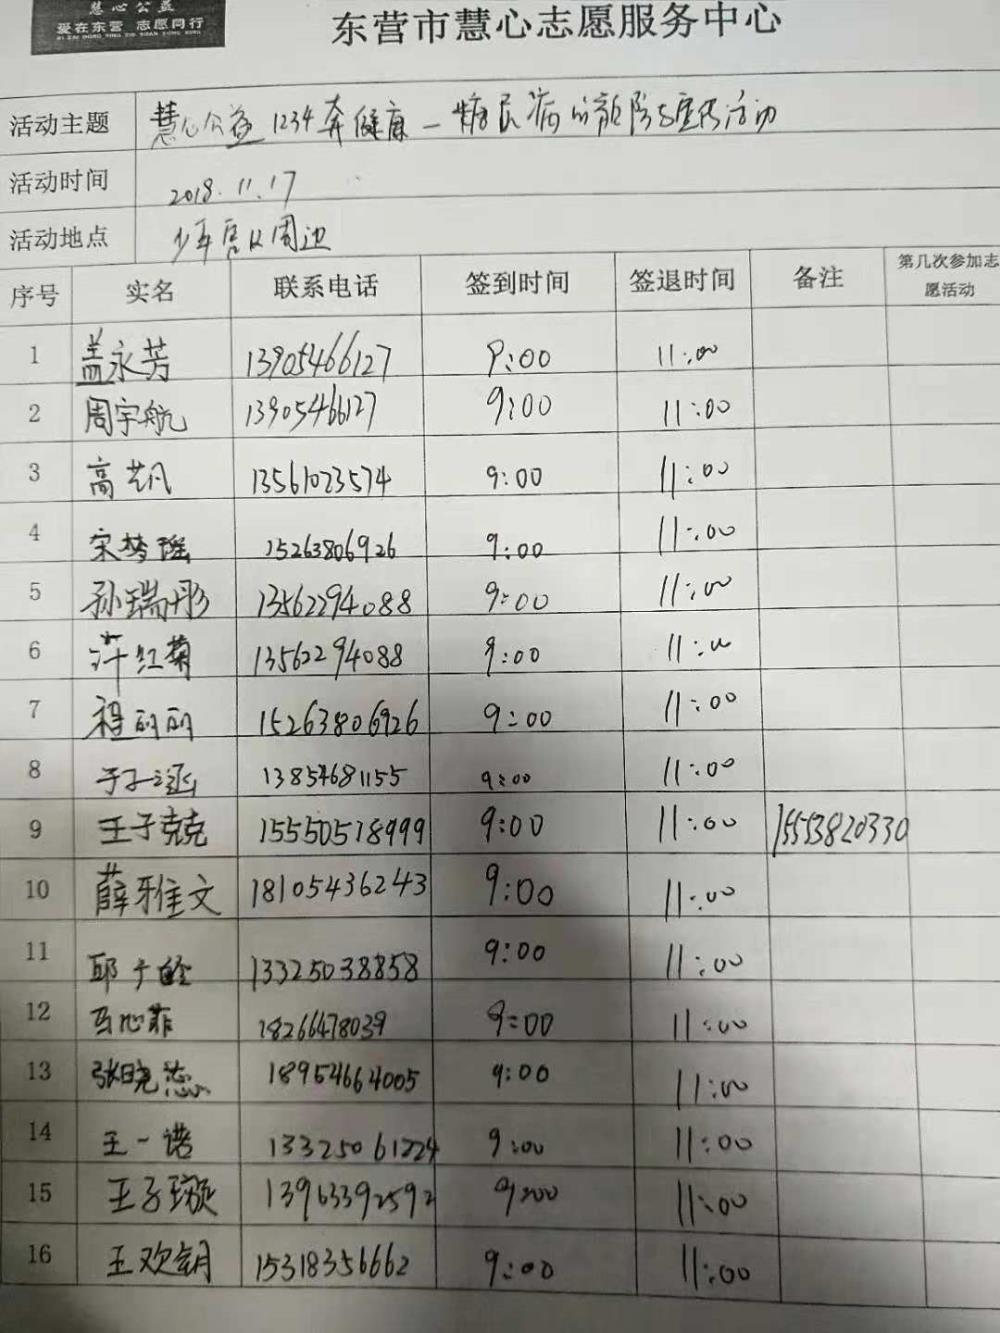 慧心公益
爱在东营 志愿同行
AI ZAI DONG YING ZHI YUAN TONG XING
东营市慧心志愿服务中心
活动主题 慧心公益 1234奔健康 — 糖尿病的预防与宣传活动
活动时间 2018.11.17
活动地点 少年宫及周边
序号 实名 联系电话 签到时间 签退时间 备注 第几次参加志愿活动
1 盖永芳 13905466127 9:00 11:00
2 周宇航 13905466127 9:00 11:00
3 高艺凡 13561023574 9:00 11:00
4 宋梦瑶 15263806926 9:00 11:00
5 孙瑞彤 13562294088 9:00 11:00
6 许红菊 13562294088 9:00 11:00
7 程丽丽 15263806926 9:00 11:00
8 于子涵 13854681155 9:00 11:00
9 王子兢 15550518999 9:00 11:00 15553820330
10 薛雅文 18105436243 9:00 11:00
11 邱 13325038858 9:00 11:00
12 心菲 18266478039 9:00 11:00
13 张晓 18954664005 9:00 11:00
14 王一诺 13325061224 9:00 11:00
15 王子璇 13963392592 9:00 11:00
16 王欢钥 15318356662 9:00 11:00